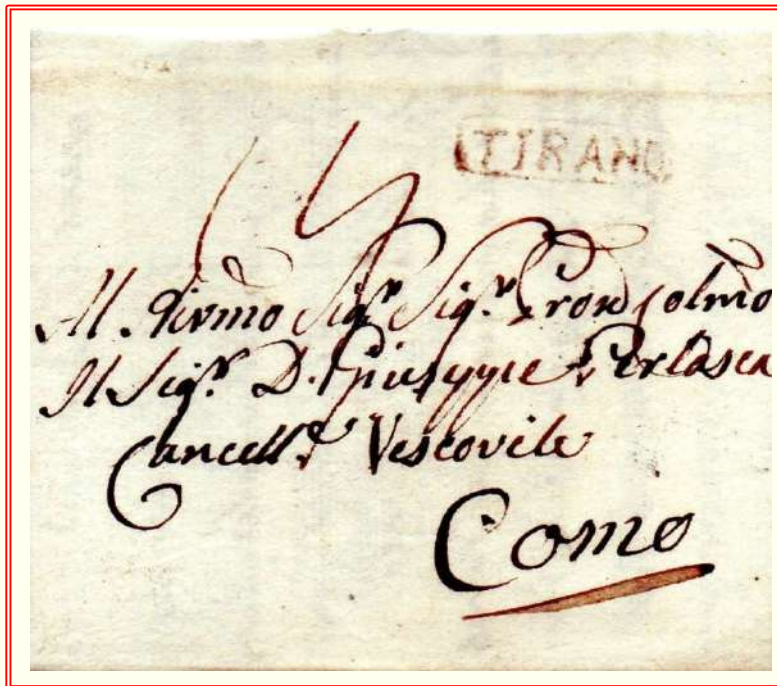 TIRANO
Al Rev̄mo Sigr Sigr Pron Colm̄o
Il Sigr D. Giuseppe Perlasca
Cancellre Vescovile
Como